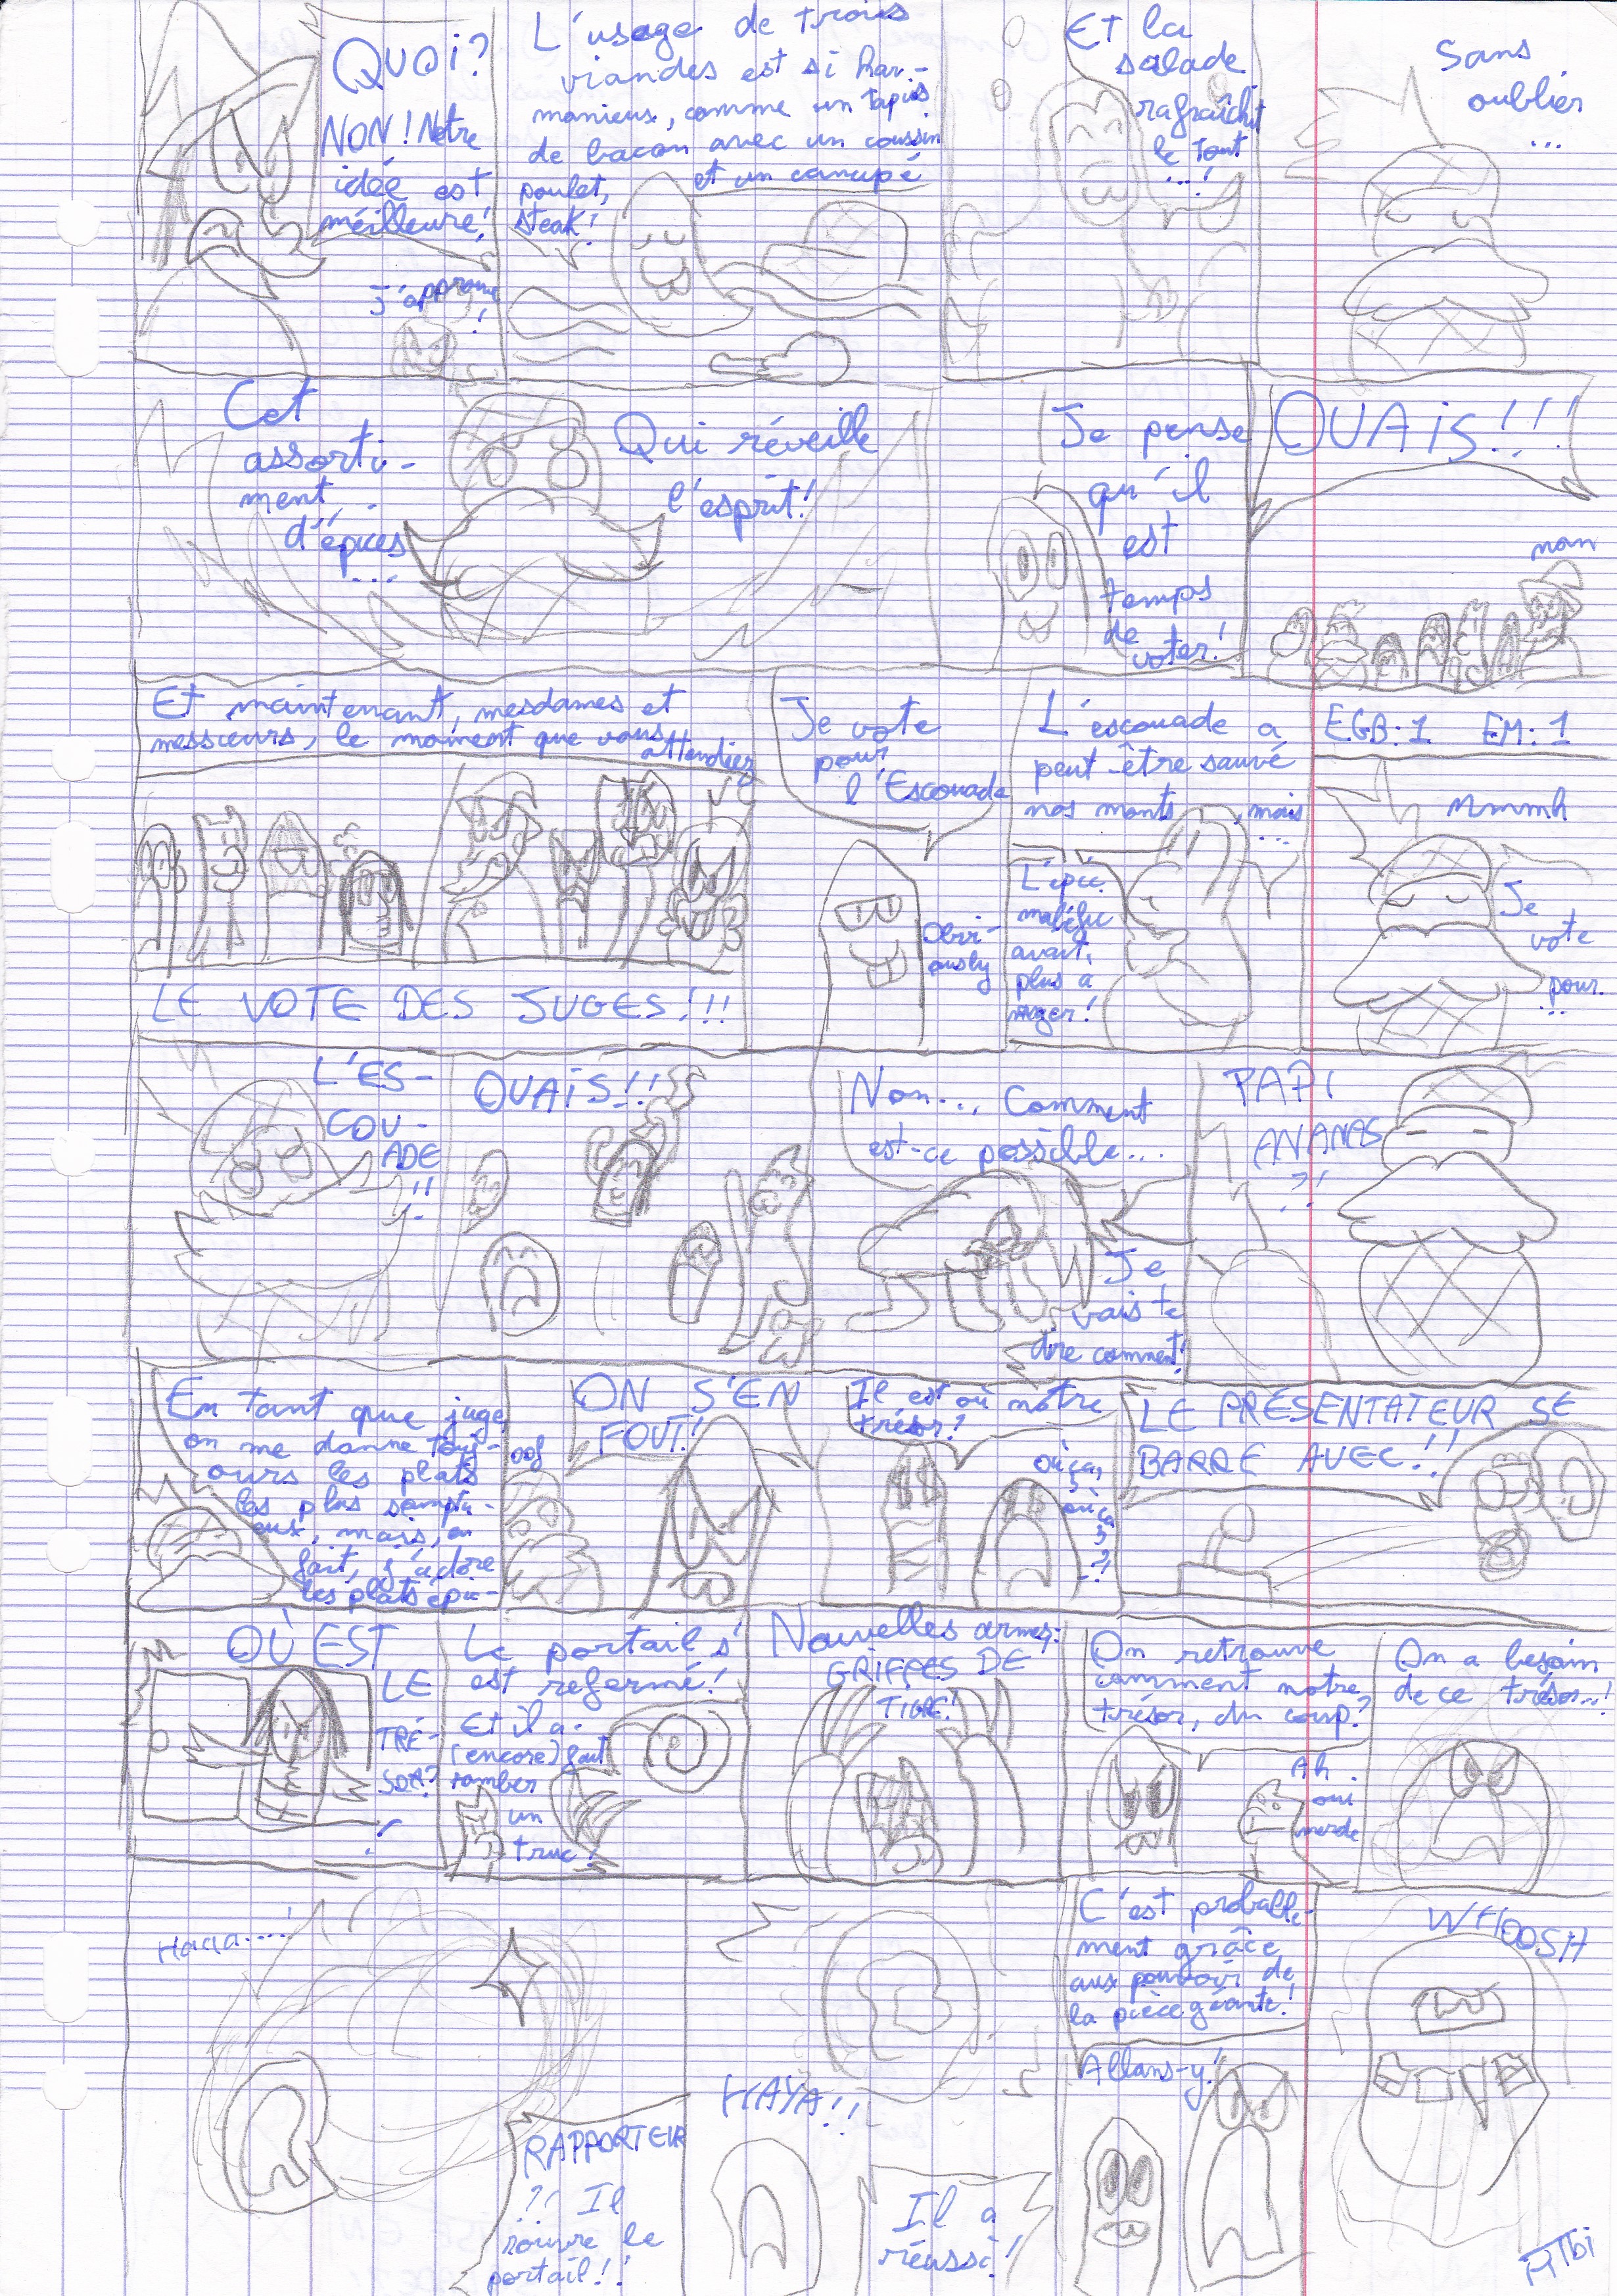 QUOI?
NON! Notre
idée est
méilleure!
J'approuve
!
L'usage de trois
viandes est si har-
monieux, comme un tapis
de bacon avec un coussin
poulet, et un canapé
steak!
Et la
salade
rafraîchit
le tout
...!
Sans
oublier
...
Cet
assorti-
ment
d'épices
...
Qui réveille
l'esprit!
Je pense
qu'il
est
temps
de
voter!
OUAIS!!!
nan
Et maintenant, mesdames et
messieurs, le moment que vous
attendiez
LE VOTE DES JUGES!!!
Je vote
pour
l'Escouade
Obvi-
ously
L'escouade a
peut-être sauvé
nos monts, mais
...
L'épic
avant,
plus à
EGB:1 EM:1
Mmmh
Je
vote
pour
...
L'ES-
COU-
ADE
!!
OUAIS!!
Non... Comment
est-ce possible...
Je
vais te
dire comment!
PAPI
ANANAS
?!
En tant que juge,
on me donne touj-
ours les plats
les plus somptu-
eux, mais, en
fait, j'adore
les plats épi-
oof
ON S'EN
FOUT!
Il est où notre
trésor?
où ça,
où ça
?!
LE PRÉSENTATEUR SE
BARRE AVEC!!
OÙ EST
LE
TRÉ-
SOR?
!
Le portail s'
est refermé!
Et il a
(encore) fait
tomber
un
truc!
Nouvelles armes:
GRIFFES DE
TIGRE!
On retrouve
comment notre
trésor, du coup?
Ah
oui
merde
On a besoin
de ce trésor..!
Haaa....!
RAPPORTEUR
?! Il
rouvre le
portail!!
HAYA!!
Il a
réussi!
C'est probable-
ment grâce
aux pouvoir de
la pièce géante!
Allons-y!
WHOOSH